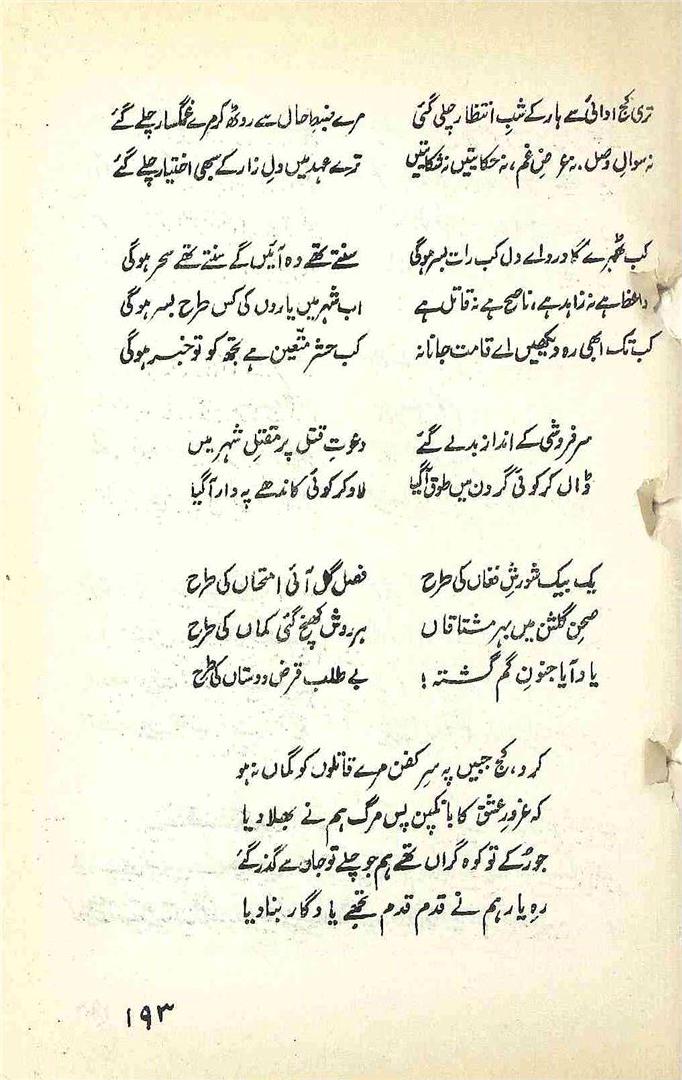 تری کج ادائی سے ہار کے شبِ انتظار چلی گئی مرے ضبطِ حال سے روٹھ کر مرے غمگسار چلے گئے
نہ سوالِ وصل، نہ عرضِ غم، نہ حکایتیں نہ شکایتیں ترے عہد میں دلِ زار کے سبھی اختیار چلے گئے
کب ٹھہرے گا درد اے دل کب رات بسر ہوگی سنتے تھے وہ آئیں گے سنتے تھے سحر ہوگی
واعظ ہے نہ زاہد ہے، ناصح ہے نہ قاتل ہے اب شہر میں یاروں کی کس طرح بسر ہوگی
کب تک ابھی رہ دیکھیں اے قامتِ جانانہ کب حشر متعّین ہے تجھ کو تو خبر ہوگی
سرفروشی کے انداز بدلے گئے دعوتِ قتل پر مقتلِ شہر میں
ڈال کر کوئی گردن میں طوق آگیا لاد کر کوئی کاندھے پہ دار آگیا
یک بیک شورشِ فغاں کی طرح فصلِ گل آئی امتحاں کی طرح
صحنِ گلشن میں بہرِ مشتاقاں ہر روش کھنچ گئی کماں کی طرح
یاد آیا جنونِ گم گشتہ! بے طلب قرضِ دوستاں کی طرح
کرو، کج جبیں پہ سرِ کفن مرے قاتلوں کو گماں نہ ہو
کہ غرورِ عشق کا بانکپن پسِ مرگ ہم نے بھلا دیا
جو رُکے تو کوہ گراں تھے ہم جو چلے تو جاں سے گذر گئے
رہِ یار ہم نے قدم قدم تجھے یادگار بنا دیا
۱۹۳